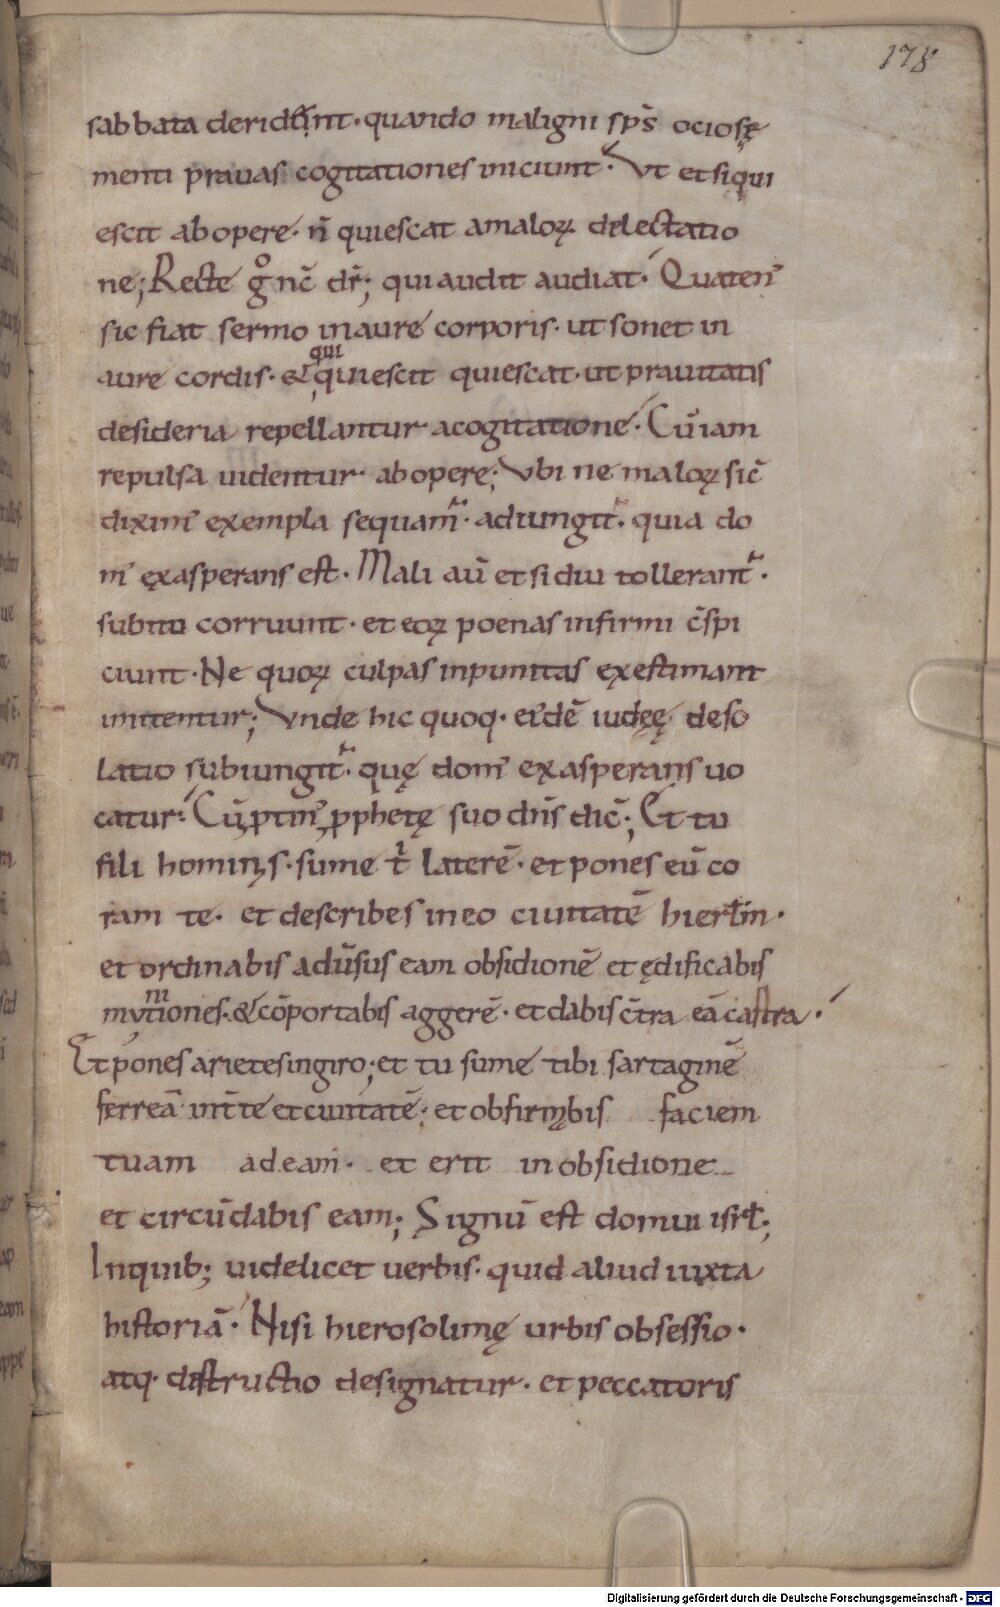 178
sabbata deriderint · quando maligni sp̄s ociosę
menti prauas cogitationes iniciunt · Vt et si qui
escit ab opere · n̄ quiescat a malorꝝ delectatio
ne; Recte gͦ nc̄ dr̄; qui audit audiat · Quaten᾽
sic fiat sermo in aurē corporis · ut sonet in
aurē cordis · & qui quiescit quiescat · ut prauitatis
desideria repellantur a cogitationē · Cū iam
repulsa uidentur · ab opere; Vbi ne malorꝝ sic̄
dixim᾽ exempla sequam᷑ · adiungit᷑ · quia do
m᾽ exasperans est · Mali aū et si diu tollerant᷑ ·
subito corruunt · et eorꝝ poenas infirmi c̄spi
ciunt · Ne quorꝝ culpas inpunitas exestimant
imitentur; Vnde hic quoq · eidē iudęę deso
latio subiungit᷑ · quę dom᾽ exasperans uo
catur · Cū ꝓtin᾽ ꝓphetę suo dn̄s dic̄; Et tu
fili hominis · sume t̄ laterē · et pones eū co
ram te · et describes in eo ciuitatē hierƚm ·
et ordinabis adūsus eam obsidionē et ędificabis
munitiones · & cōportabis aggerē · et dabis c̄tra eā castra ·
Et pones arietes in giro; et tu sume tibi sartaginē
ferreā int̄ te et ciuitatē; et obfirmabis faciem
tuam ad eam · et erit in obsidione
et circūdabis eam; Signū est domui isrƚ;
Inquib; uidelicet uerbis · quid aliud iuxta
historiā · Nisi hierosolimę urbis obsessio ·
atq · destructio designatur · et peccatoris
Digitalisierung gefördert durch die Deutsche Forschungsgemeinschaft - DFG